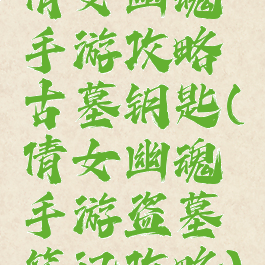 倩女幽魂
手游攻略
古墓钥匙(
倩女幽魂
手游盗墓
笔记攻略)